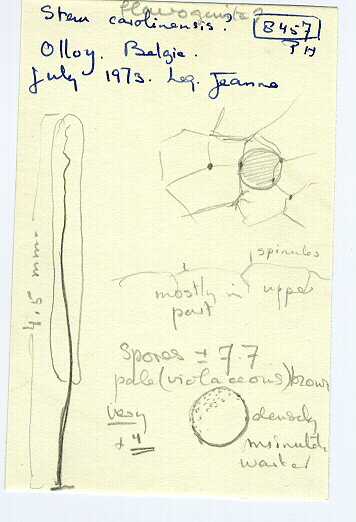 flavogenita?
Stem carolinensis. B457
PH
Olloy. Belgie.
July 1973. Leg. Jeanne
4.5 mm
spinules
mostly in upper
part
Spores ± 7.7
pale (violaceous) brown
Very
± 4
densely
minutely
warted